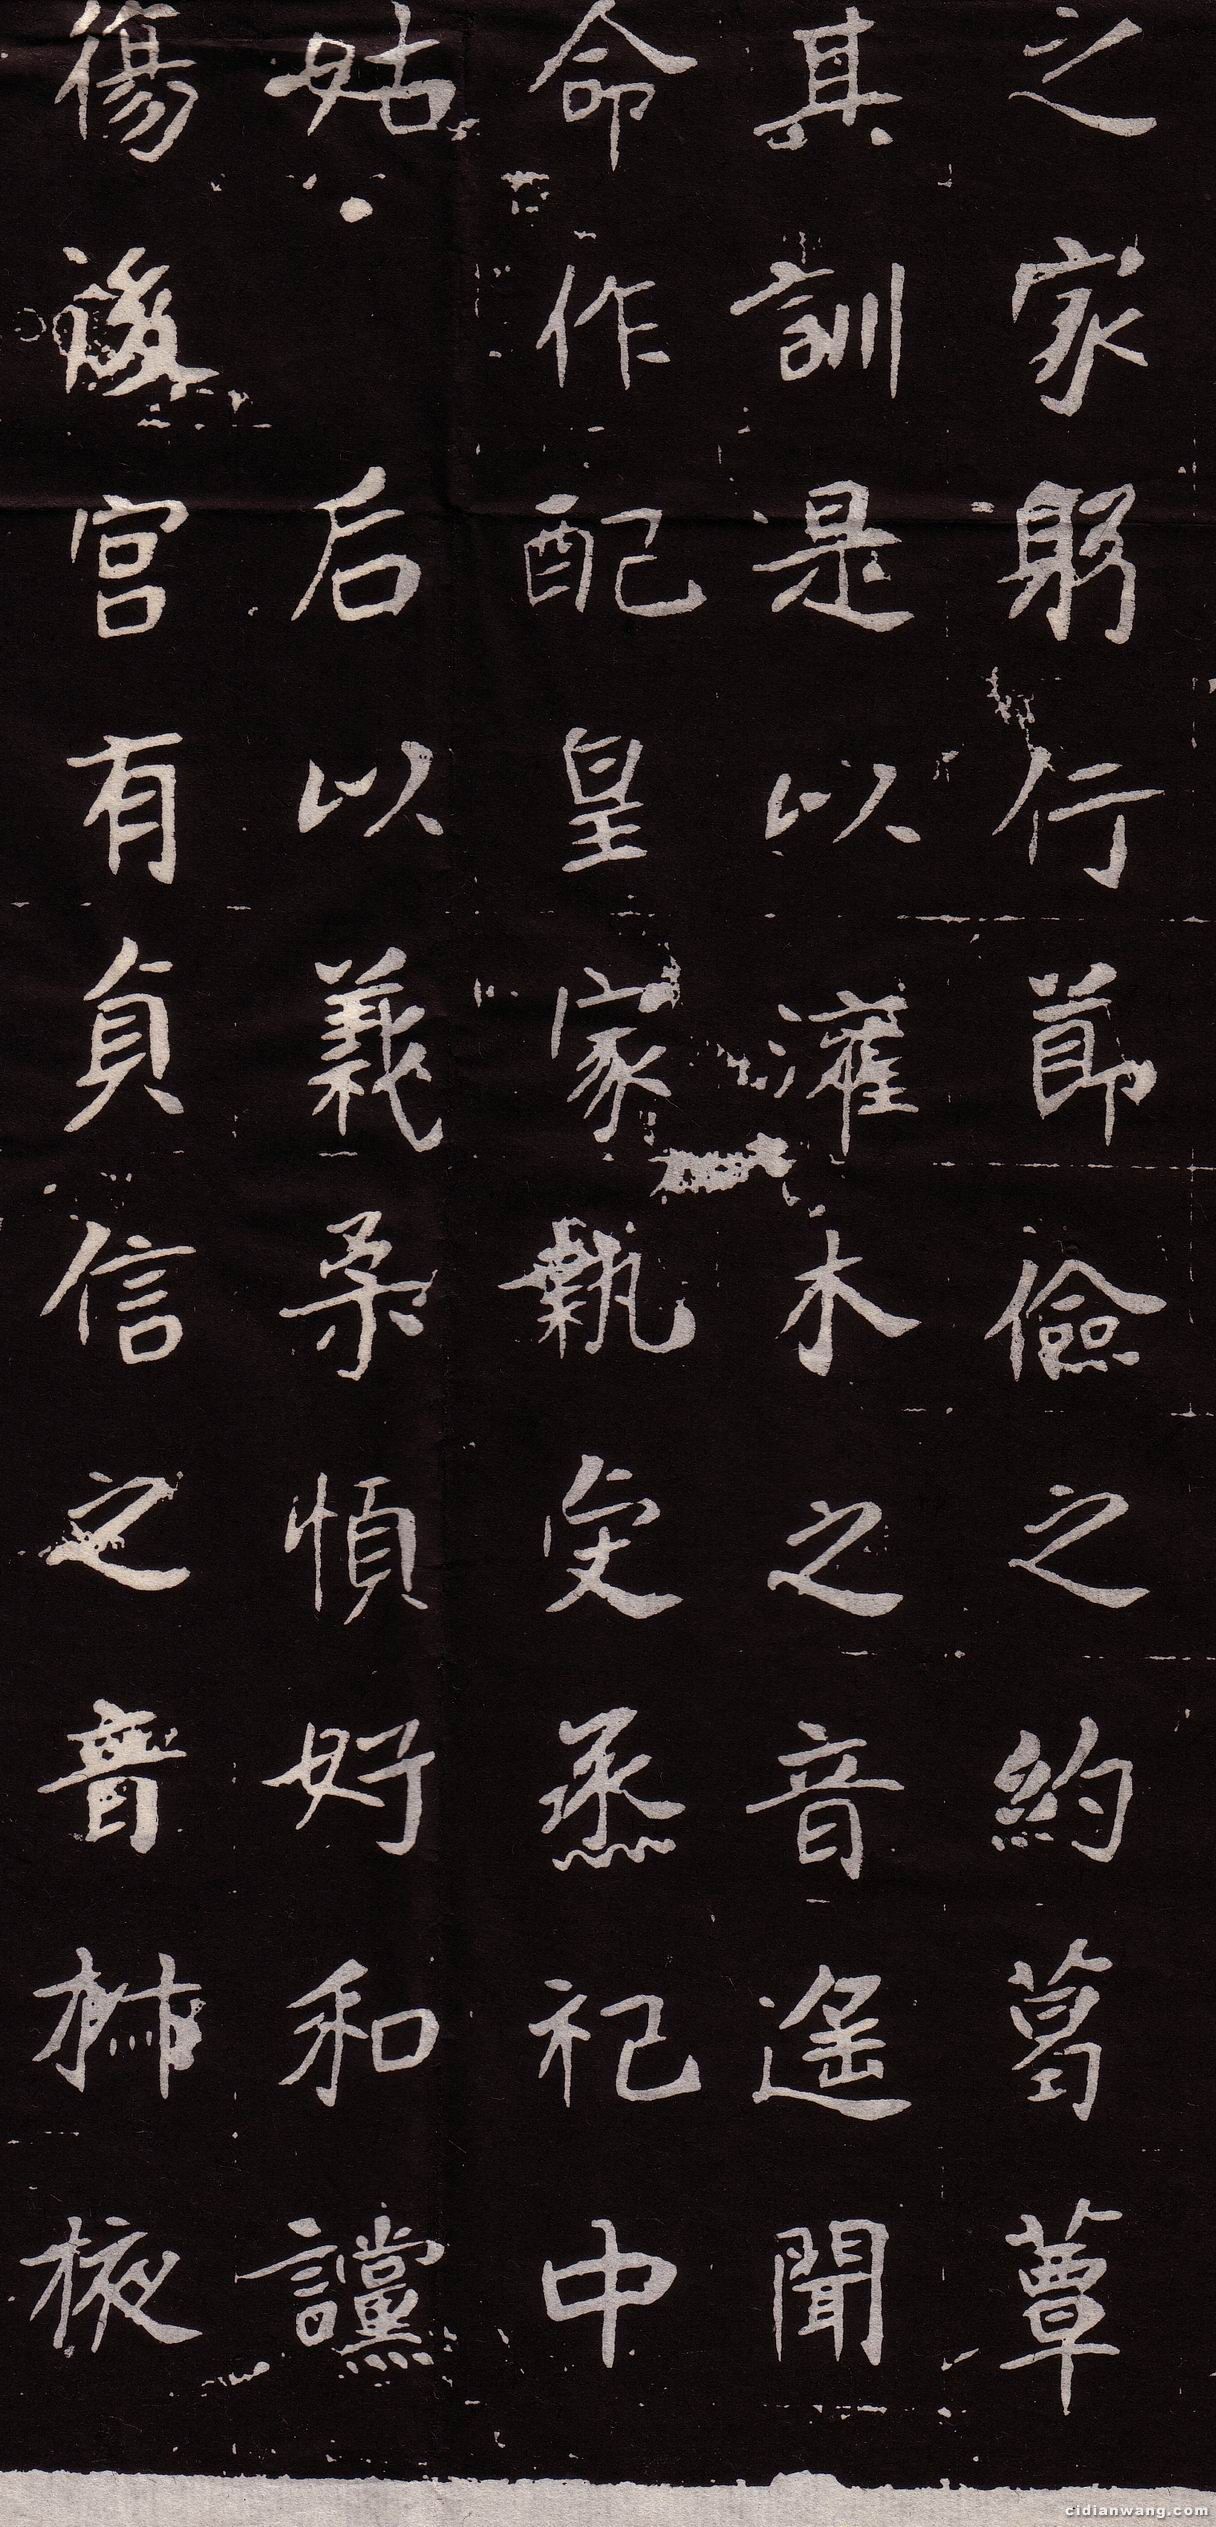 之家躬行節儉之約葛蕈
其訓是以灌木之音遙聞
命作配皇家執烝祀中
姑后以義柔慎好和讜
傷後宮有貞信之椒掖
cidianwang.com